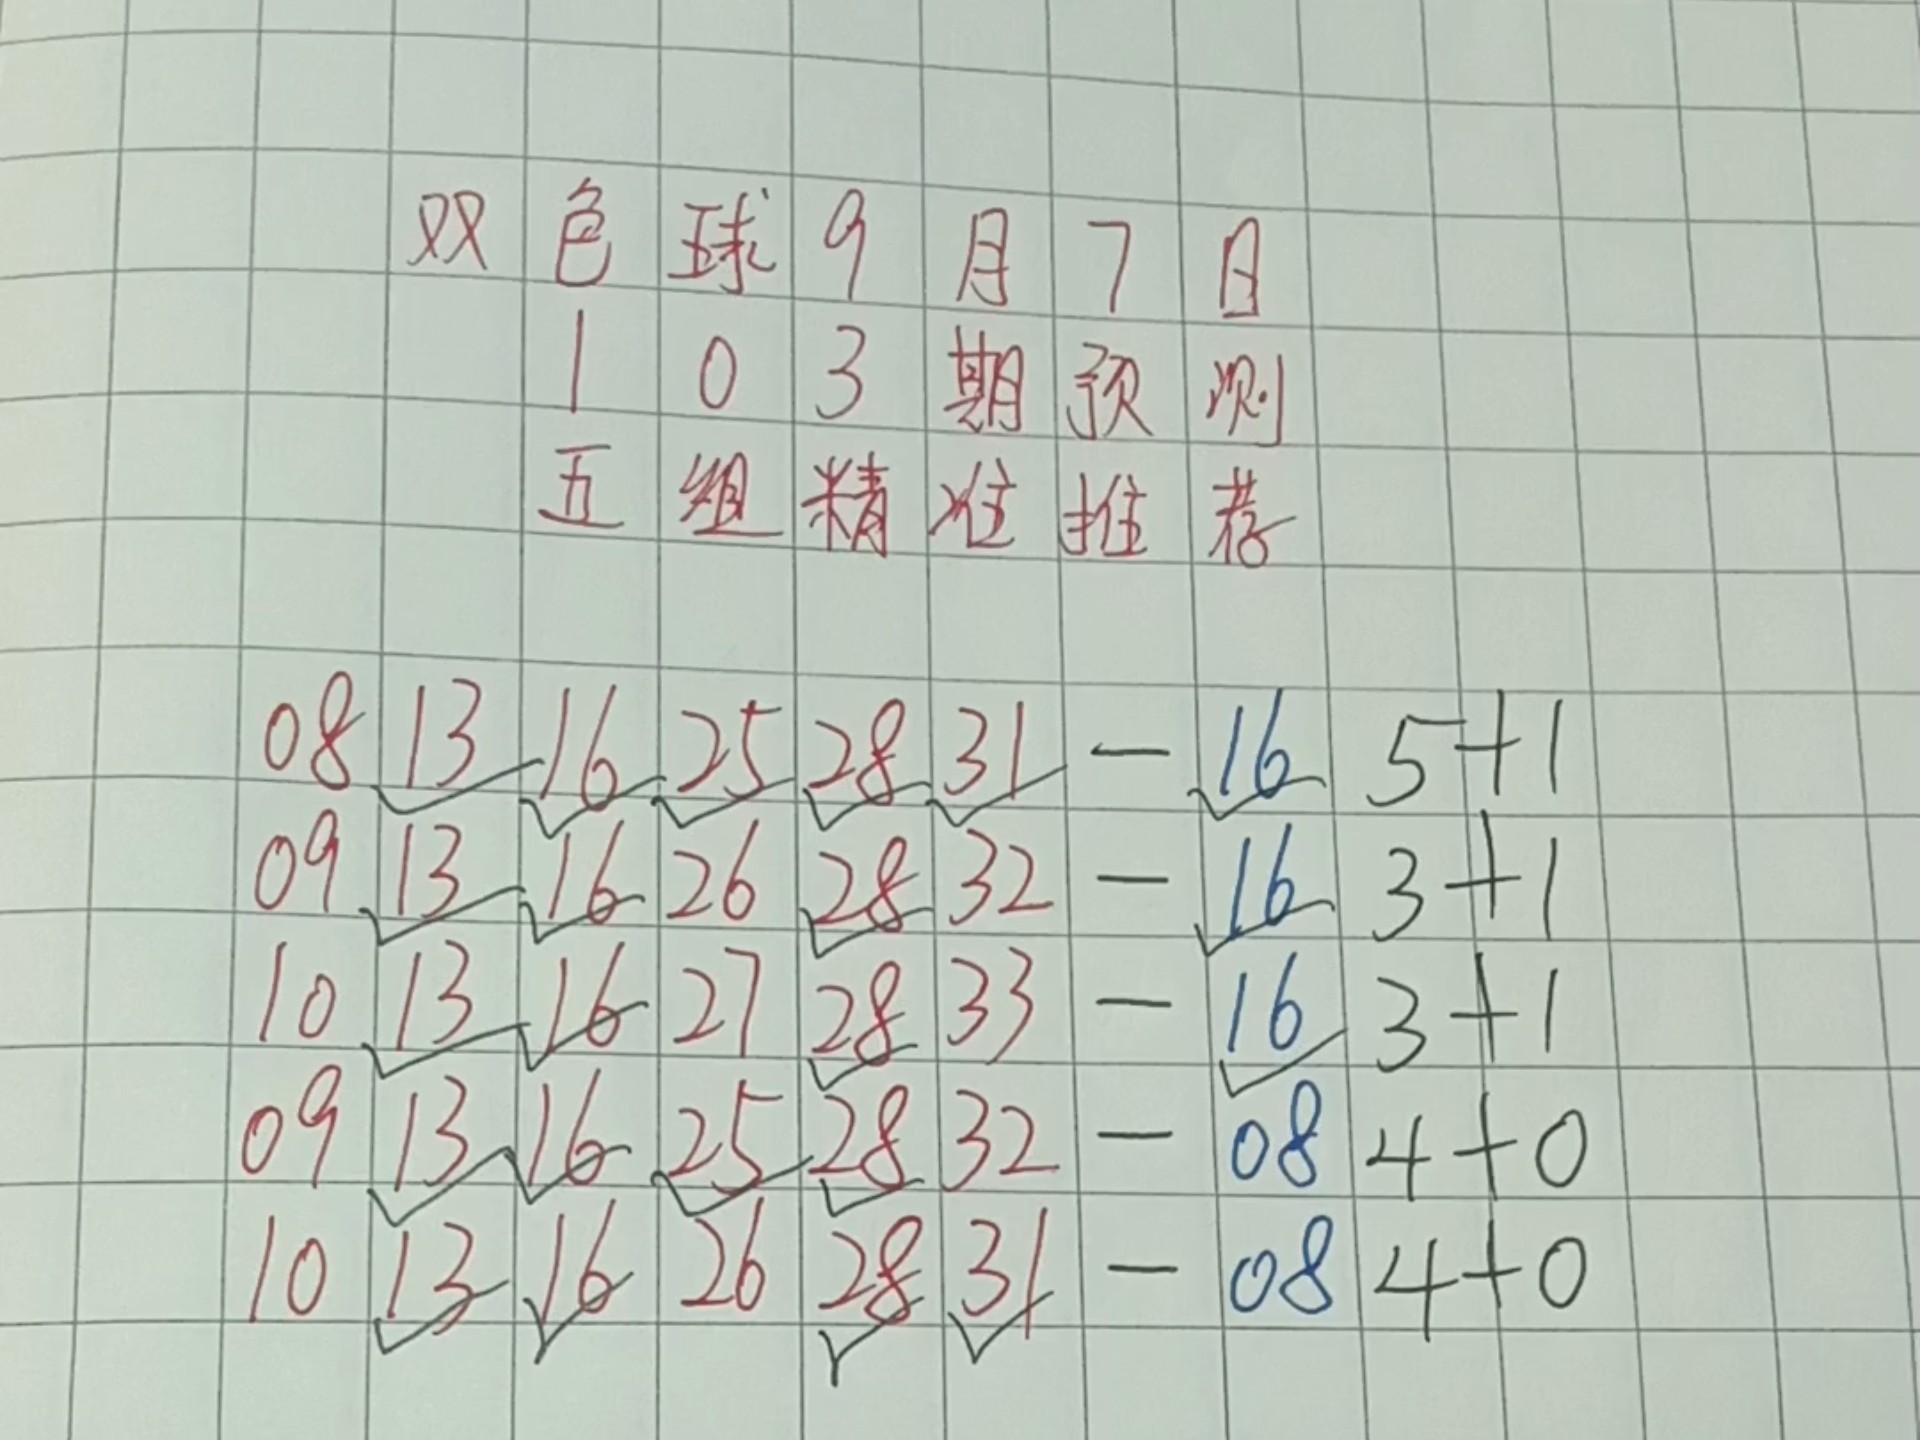 双色球9月7日
103期预测
五组精准推荐
08 13 16 25 28 31 — 16 5+1
09 13 16 26 28 32 — 16 3+1
10 13 16 27 28 33 — 16 3+1
09 13 16 25 28 32 — 08 4+0
10 13 16 26 28 31 — 08 4+0